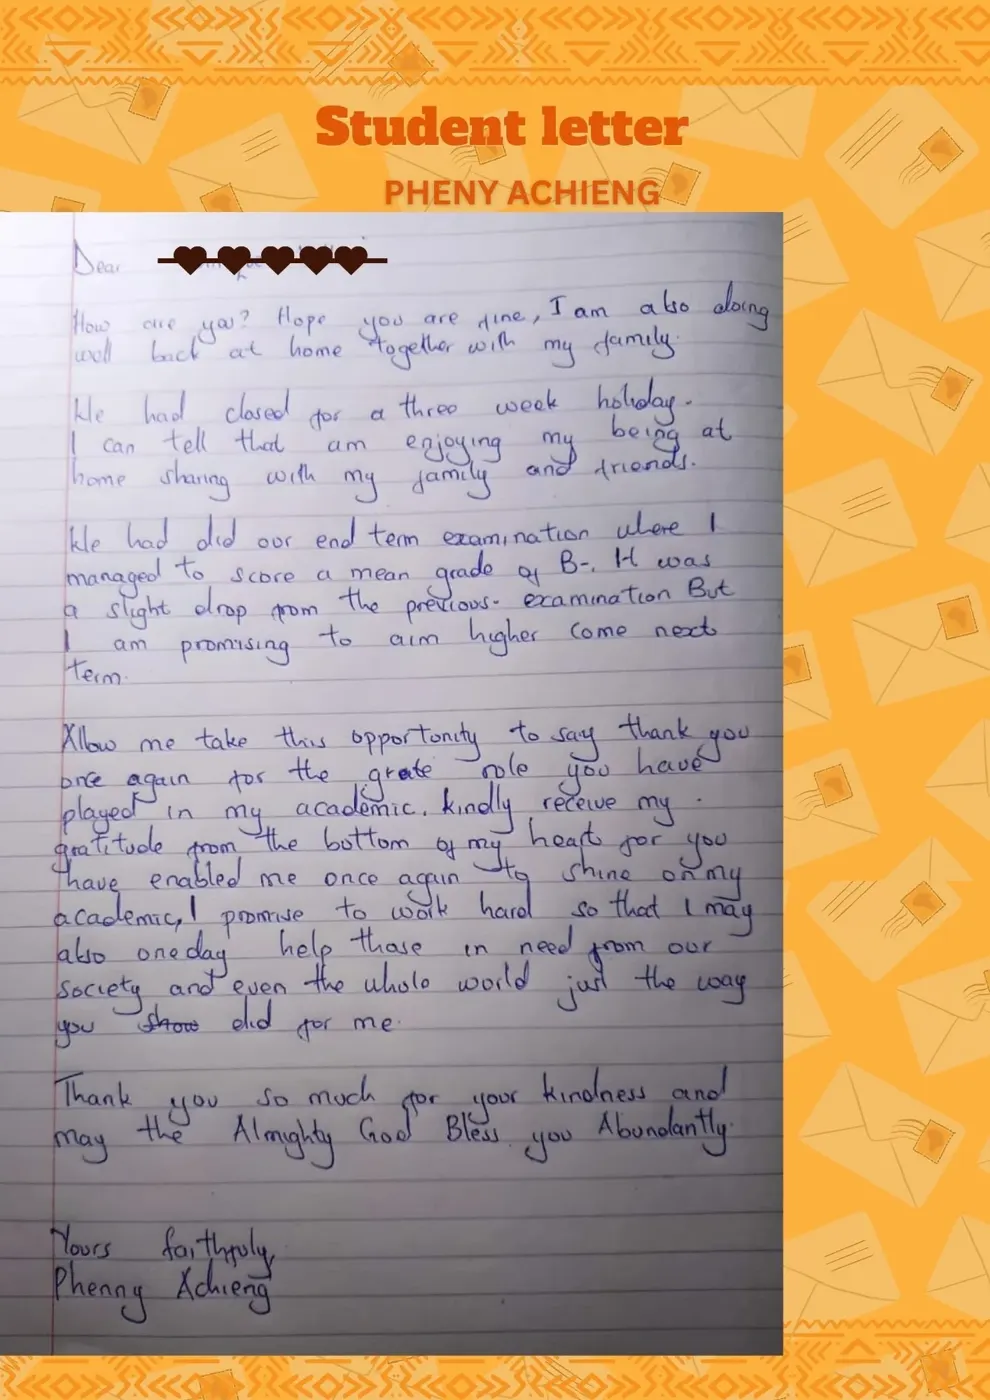 Student letter
PHENY ACHIENG
Dear
How are you? Hope you are fine, I am also doing
well back at home together with my family.
We had closed for a three week holiday.
I can tell that am enjoying my being at
home sharing with my family and friends.
We had did our end term examination where I
managed to score a mean grade of B-. It was
a slight drop from the previous- examination But
I am promising to aim higher come next
term.
Allow me take this opportunity to say thank you
once again for the grate role you have
played in my academic. kindly receive my
gratitude from the bottom of my heart for you
have enabled me once again to shine on my
academic, I promise to work hard so that I may
also one day help those in need from our
society and even the whole world just the way
you show did for me.
Thank you so much for your kindness and
may the Almighty God Bless you Abundantly.
Yours faithfuly,
Phenny Achieng